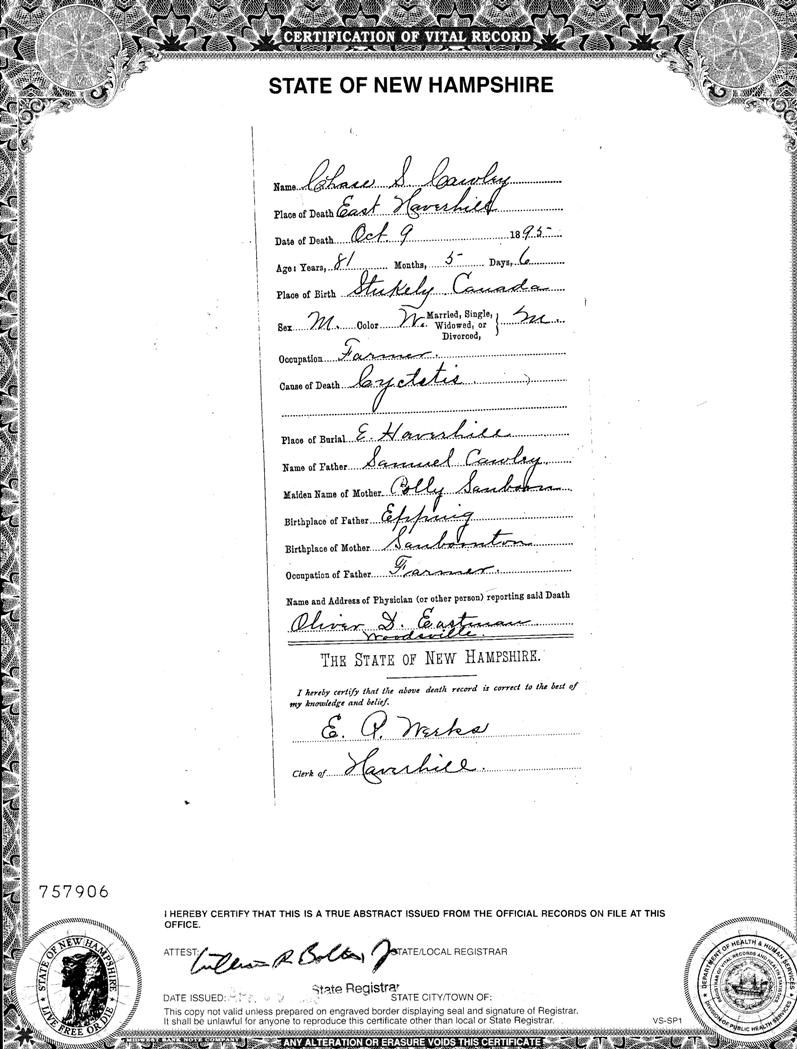 CERTIFICATION OF VITAL RECORD
STATE OF NEW HAMPSHIRE
Name Chase S Cawley
Place of Death East Haverhill
Date of Death Oct. 9 1895
Age: Years, 81 Months, 5 Days, 6
Place of Birth Stukely Canada
Sex M. Color W. Married, Single, Widowed, or Divorced, } M.
Occupation Farmer.
Cause of Death Cyctetis
Place of Burial E. Haverhill
Name of Father Samuel Cawley
Maiden Name of Mother Polly Sanborn
Birthplace of Father Epping
Birthplace of Mother Sanbornton
Occupation of Father Farmer.
Name and Address of Physician (or other person) reporting said Death
Oliver D. Eastman
Woodsville.
THE STATE OF NEW HAMPSHIRE.
I hereby certify that the above death record is correct to the best of
my knowledge and belief.
E. P. Werks
Clerk of Haverhill.
757906
I HEREBY CERTIFY THAT THIS IS A TRUE ABSTRACT ISSUED FROM THE OFFICIAL RECORDS ON FILE AT THIS
OFFICE.
ATTEST: William R Bolton Jr STATE/LOCAL REGISTRAR
State Registrar
DATE ISSUED: STATE CITY/TOWN OF:
This copy not valid unless prepared on engraved border displaying seal and signature of Registrar.
It shall be unlawful for anyone to reproduce this certificate other than local or State Registrar.
VS-SP1
STATE OF NEW HAMPSHIRE
LIVE FREE OR DIE
DEPARTMENT OF HEALTH & HUMAN SERVICES
DIVISION OF PUBLIC HEALTH SERVICES
MIDWEST BANK NOTE COMPANY
ANY ALTERATION OR ERASURE VOIDS THIS CERTIFICATE